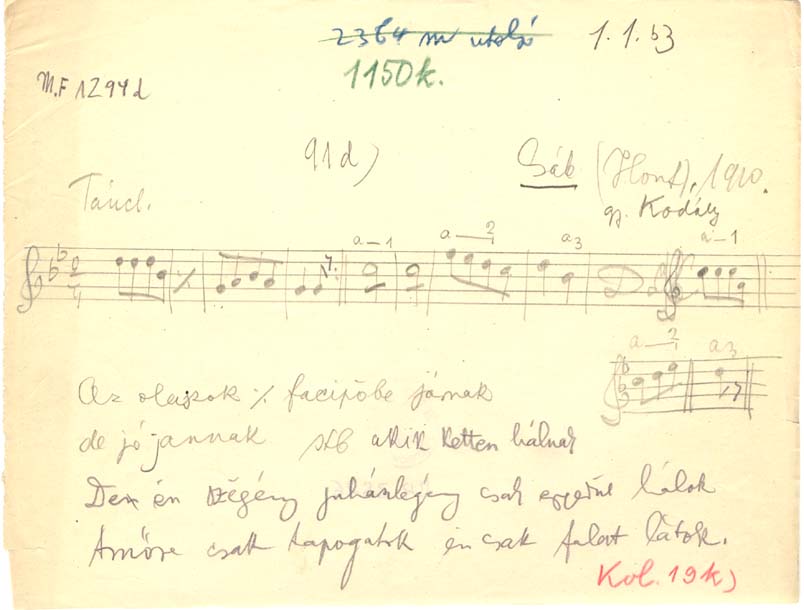 2364 m utolsó 1.1.53
1150k.
M.F 1294d
91d) Sáb (Hont), 1910.
Táncd. gy. Kodály
a—1 a—2 a3 a—1
a—2 a3
Az olaszok ٪ facipőbe járnak
de jó jannak stb akik ketten hálnak
De én szegény juhászlegény csak egyedül hálok
Amőre csak tapogatok én csak falat látok.
Kob. 19k)